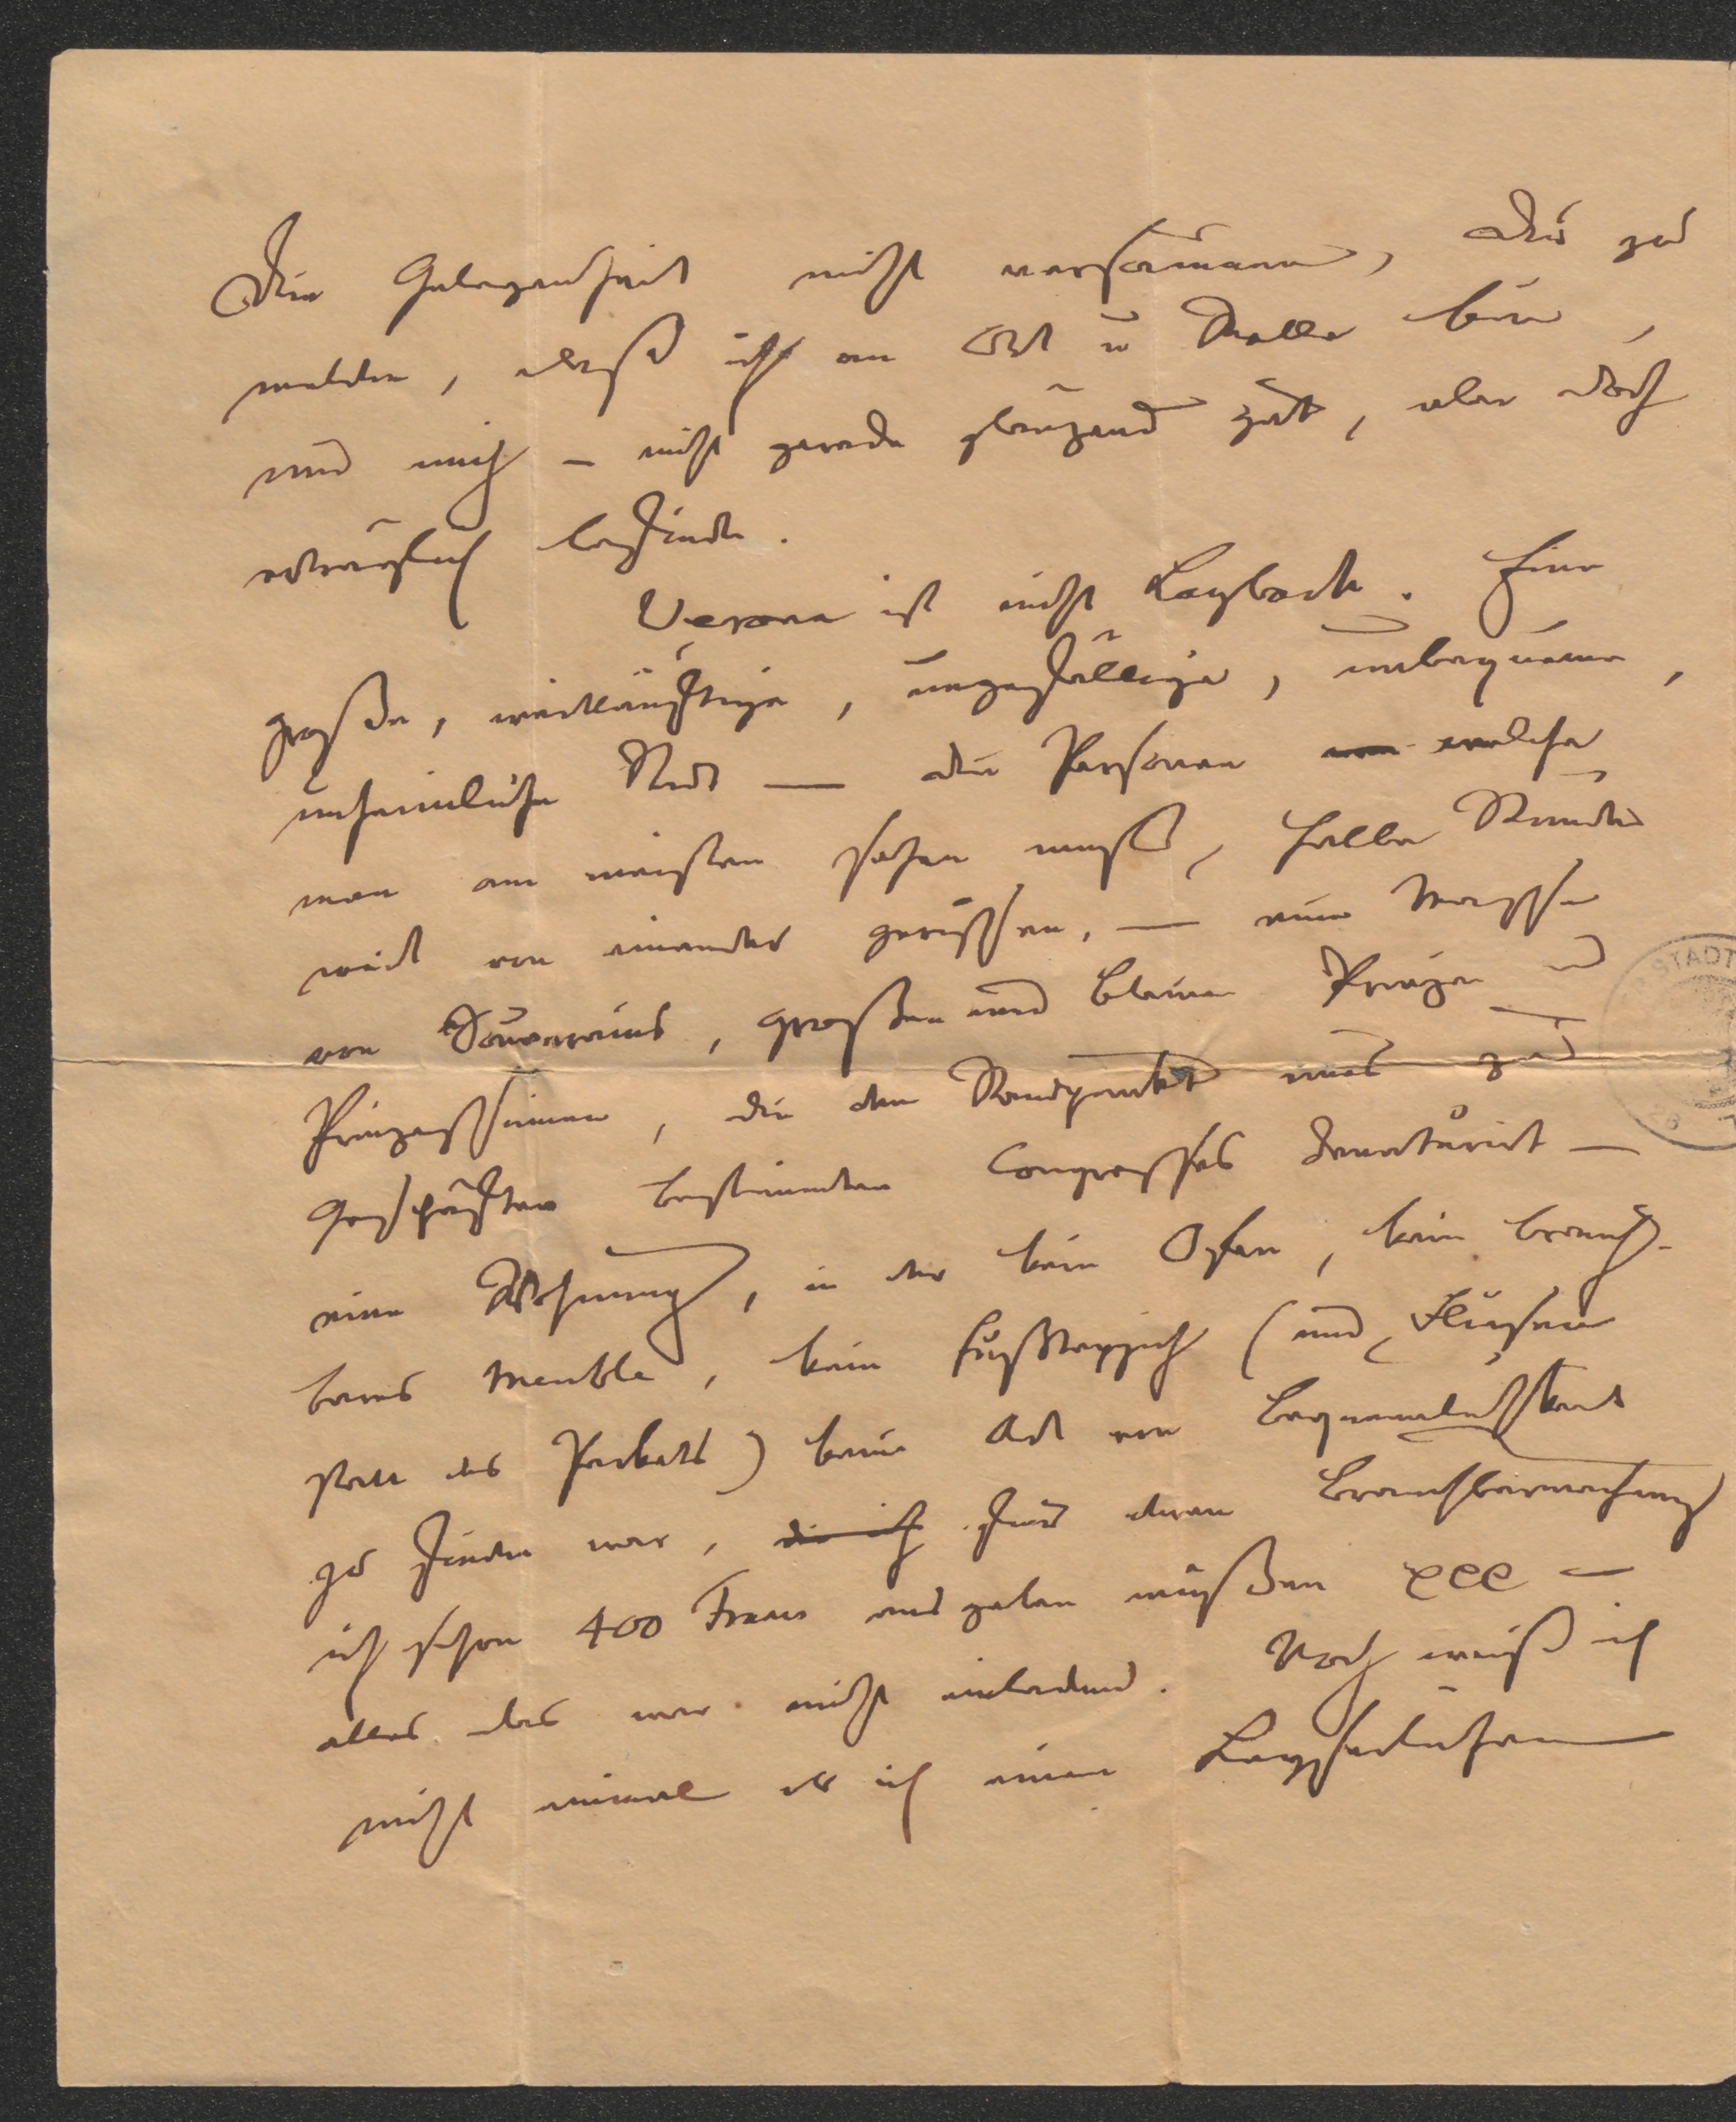 die Gelegenheit nicht versäumen, Dir zu
melden, daß ich an Ort u Stelle bin,
und mich – nicht gerade glänzend gut, aber doch
erträglich befinde.
Verona ist nicht Laybach. Eine
große, weitläuftige, ungefällige, unbequeme,
unheimliche Stadt — die Personen welche
man am meisten sehen muß, halbe Stunden
weit von einander gerissen, — eine Masse
von Souverains, großen und kleinen Prinzen u
Prinzessinnen, die den Standpunkt eines zu
Geschäften bestimmten Congresses denaturirt —
eine Wohnung, in der kein Ofen, kein brauch-
bares Meuble, kein Fußteppich (und Fliesen
statt des Parkets) keine Art von Bequemlichkeit
zu finden war, für deren Brauchbarmachung
ich schon 400 Francs ausgeben müßen —
alles das war nicht einladend. Noch weiß ich
nicht einmal ob ich einen